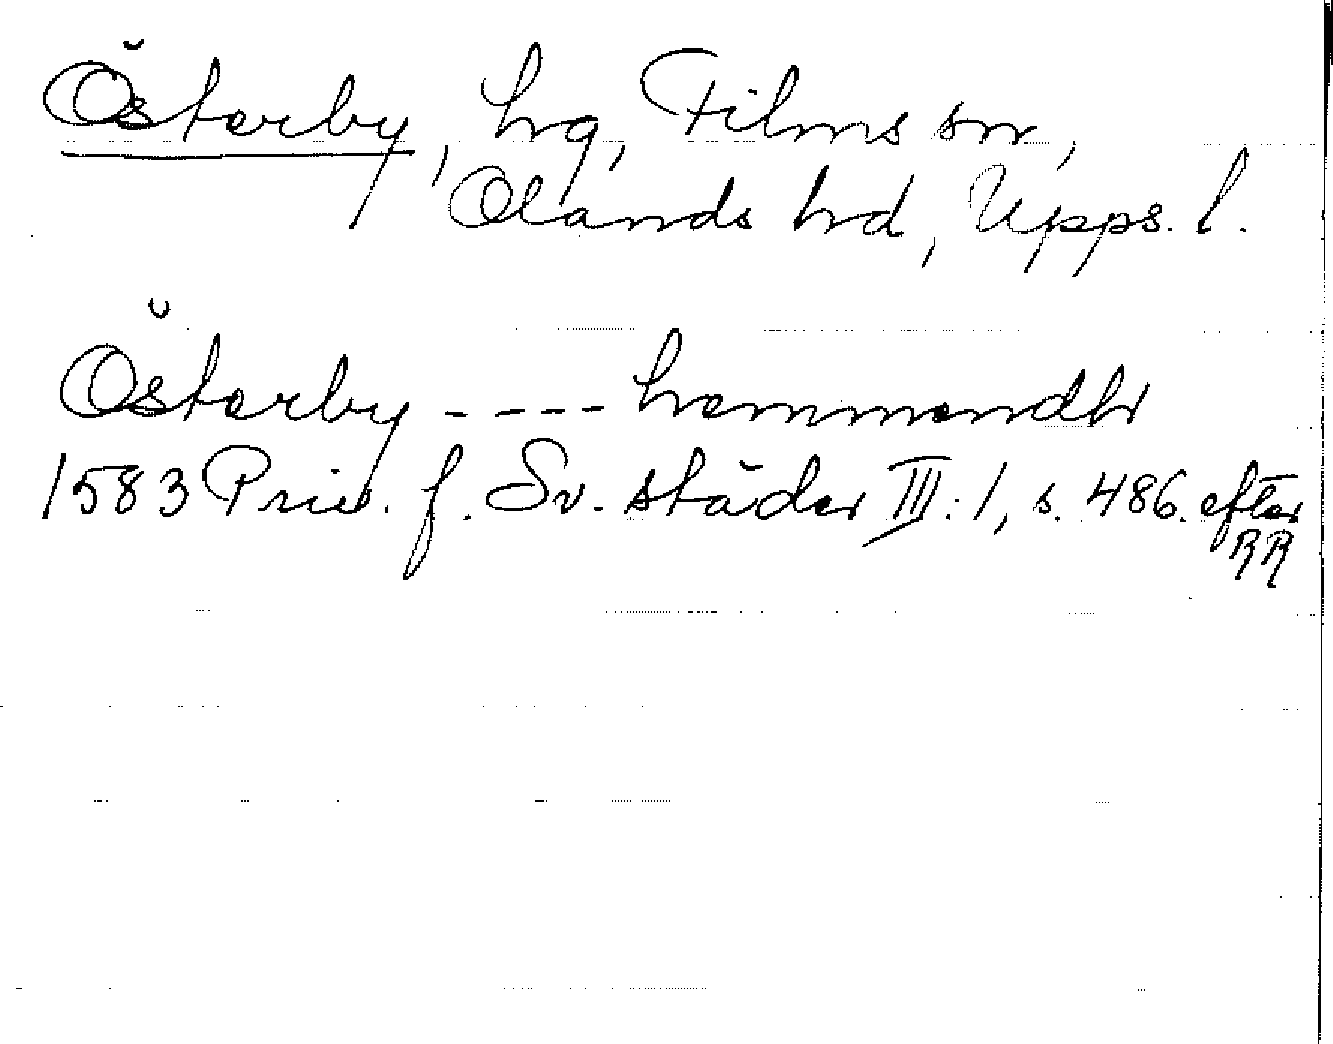 Österby, hg, Films sn,
Olands hd, Upps. l.
Österby ---- hammendh
1583 Priv. f. Sv. städer III:1, s. 486. efter
RR